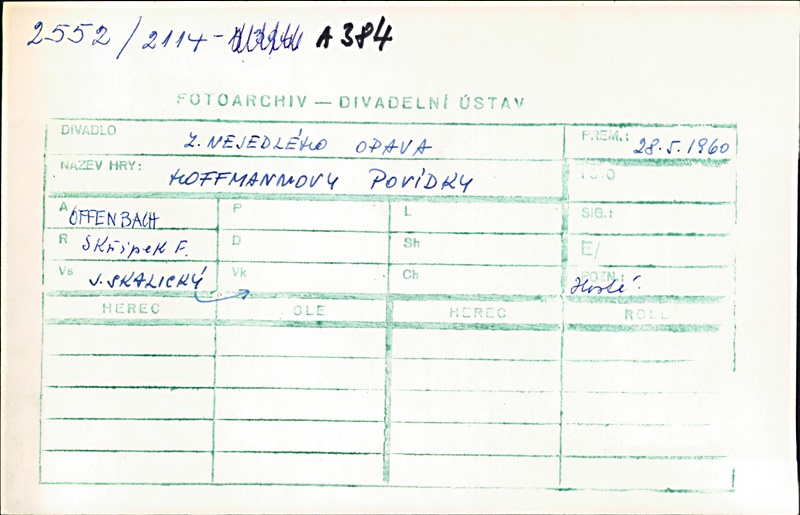 2552/2114- A384
FOTOARCHIV — DIVADELNÍ ÚSTAV
DIVADLO Z. NEJEDLÉHO OPAVA PREM.: 28.5.1960
NÁZEV HRY: HOFFMANNOVY POVÍDKY
A OFFENBACH P L SIG.:
R SKŘIPEK F. D Sh E/
Vs J. SKALICKÝ Vk Ch POZN.:
HEREC OLE HEREC ROLE